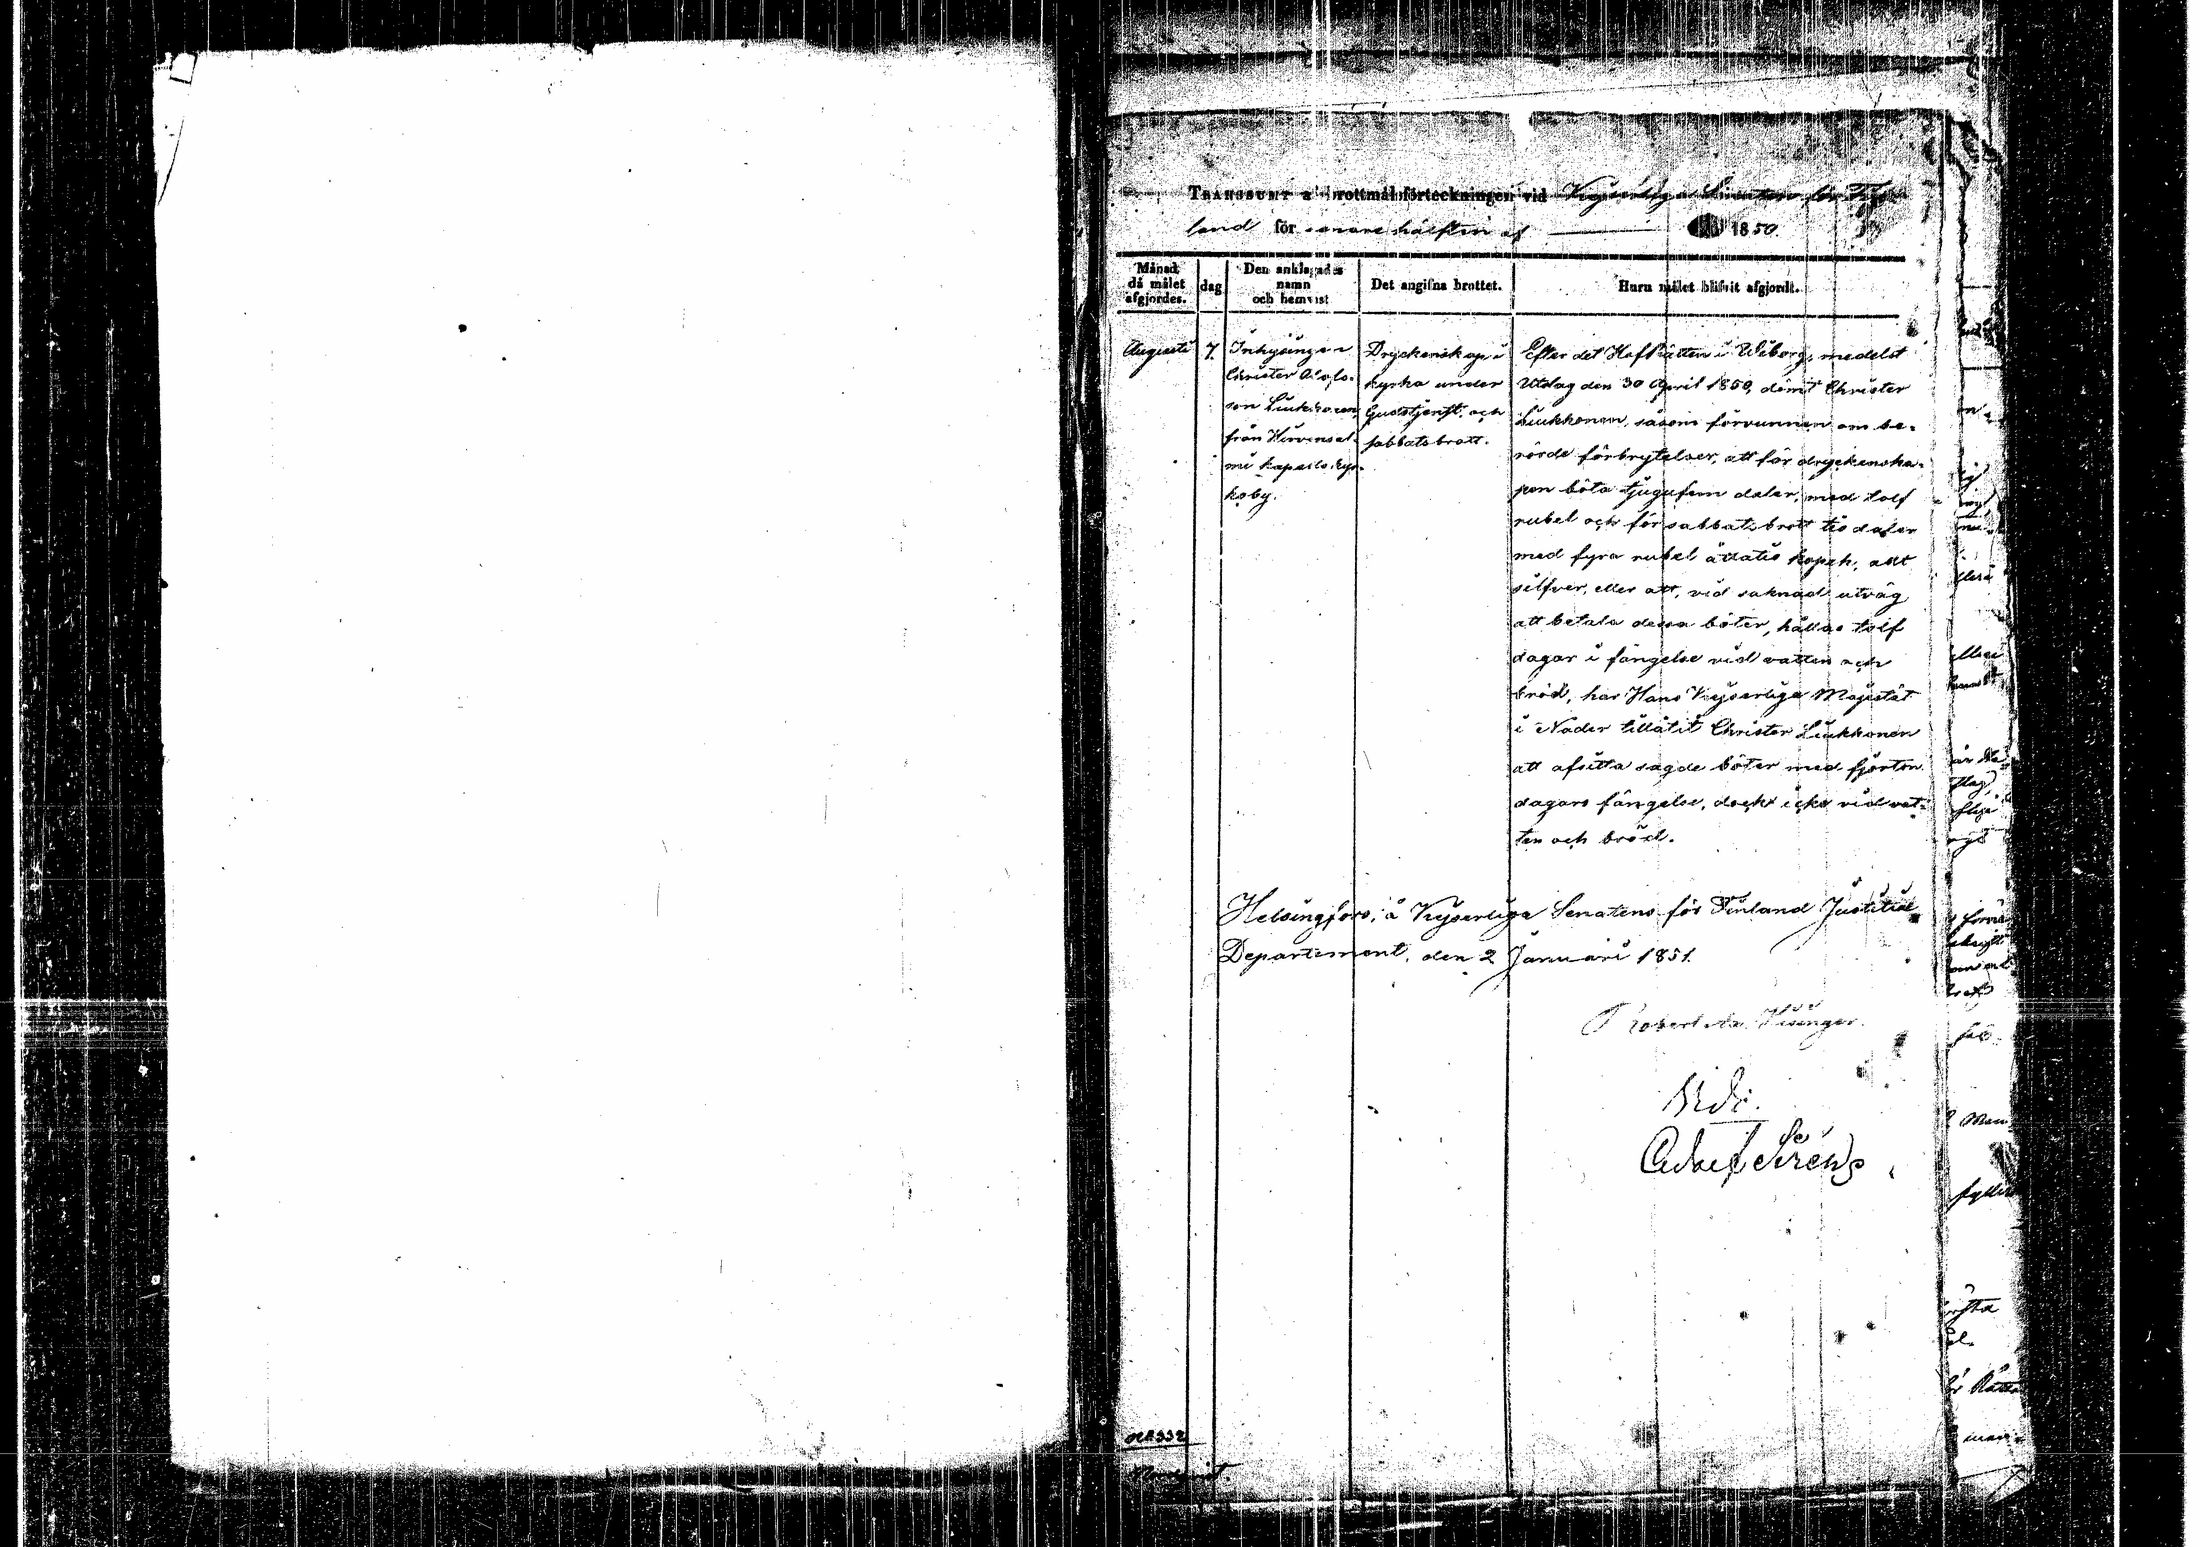 TRANSSUMT af brottmålsförteckningen vid Kejserliga Senaten för Fin-
land för senare hälften af 1850.
Månad, då målet afgjordes.
dag
Den anklagades namn och hemvist
Det angifna brottet.
Huru målet blifvit afgjordt.
Augusti
7.
Inhysingen
Christer Olofs-
son Liukkonen,
från Hirvensal-
mi kapells kyr-
koby.
Dryckenskap i
kyrka under
Gudstjenst, och
sabbatsbrott.
Efter det HofRätten i Wiborg, medelst
Utslag den 30 April 1850, dömt Christer
Liukkonen, såsom förvunnen om be-
rörde förbrytelser, att för dryckenska-
pen böta tjugufem daler, med tolf
rubel och för sabbatsbrott tio daler
med fyra rubel åttatio kopek, allt
silfver, eller att, vid saknad utväg
att betala dessa böter, hållas tolf
dagar i fängelse vid vatten och
bröd, har Hans Kejserliga Majestät
i Nåder tillåtit Christer Liukkonen
att afsitta sagde böter med fjorton
dagars fängelse, dock icke vid vat-
ten och bröd.
Helsingfors, å Kejserliga Senatens för Finland Justitiæ
Departement, den 2 Januari 1851.
Robert